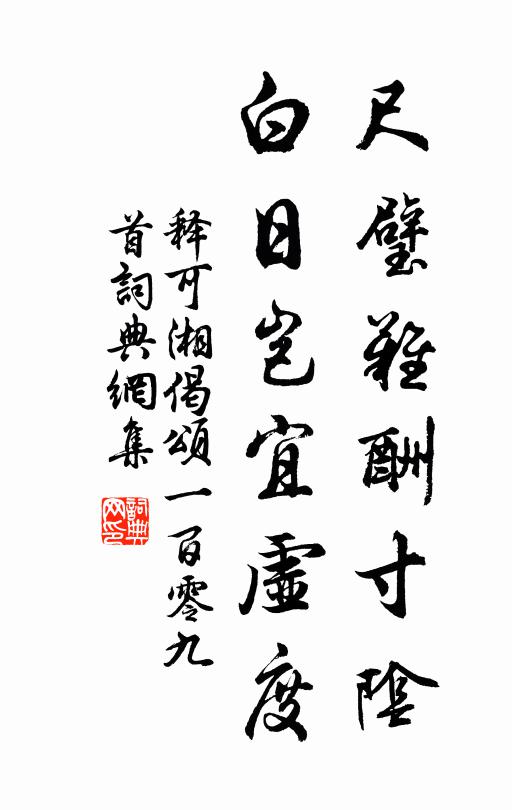 尺璧難酬寸陰
白日豈宜虛度
释可湘偈頌一百零九
首詞典網集
詞典
网印